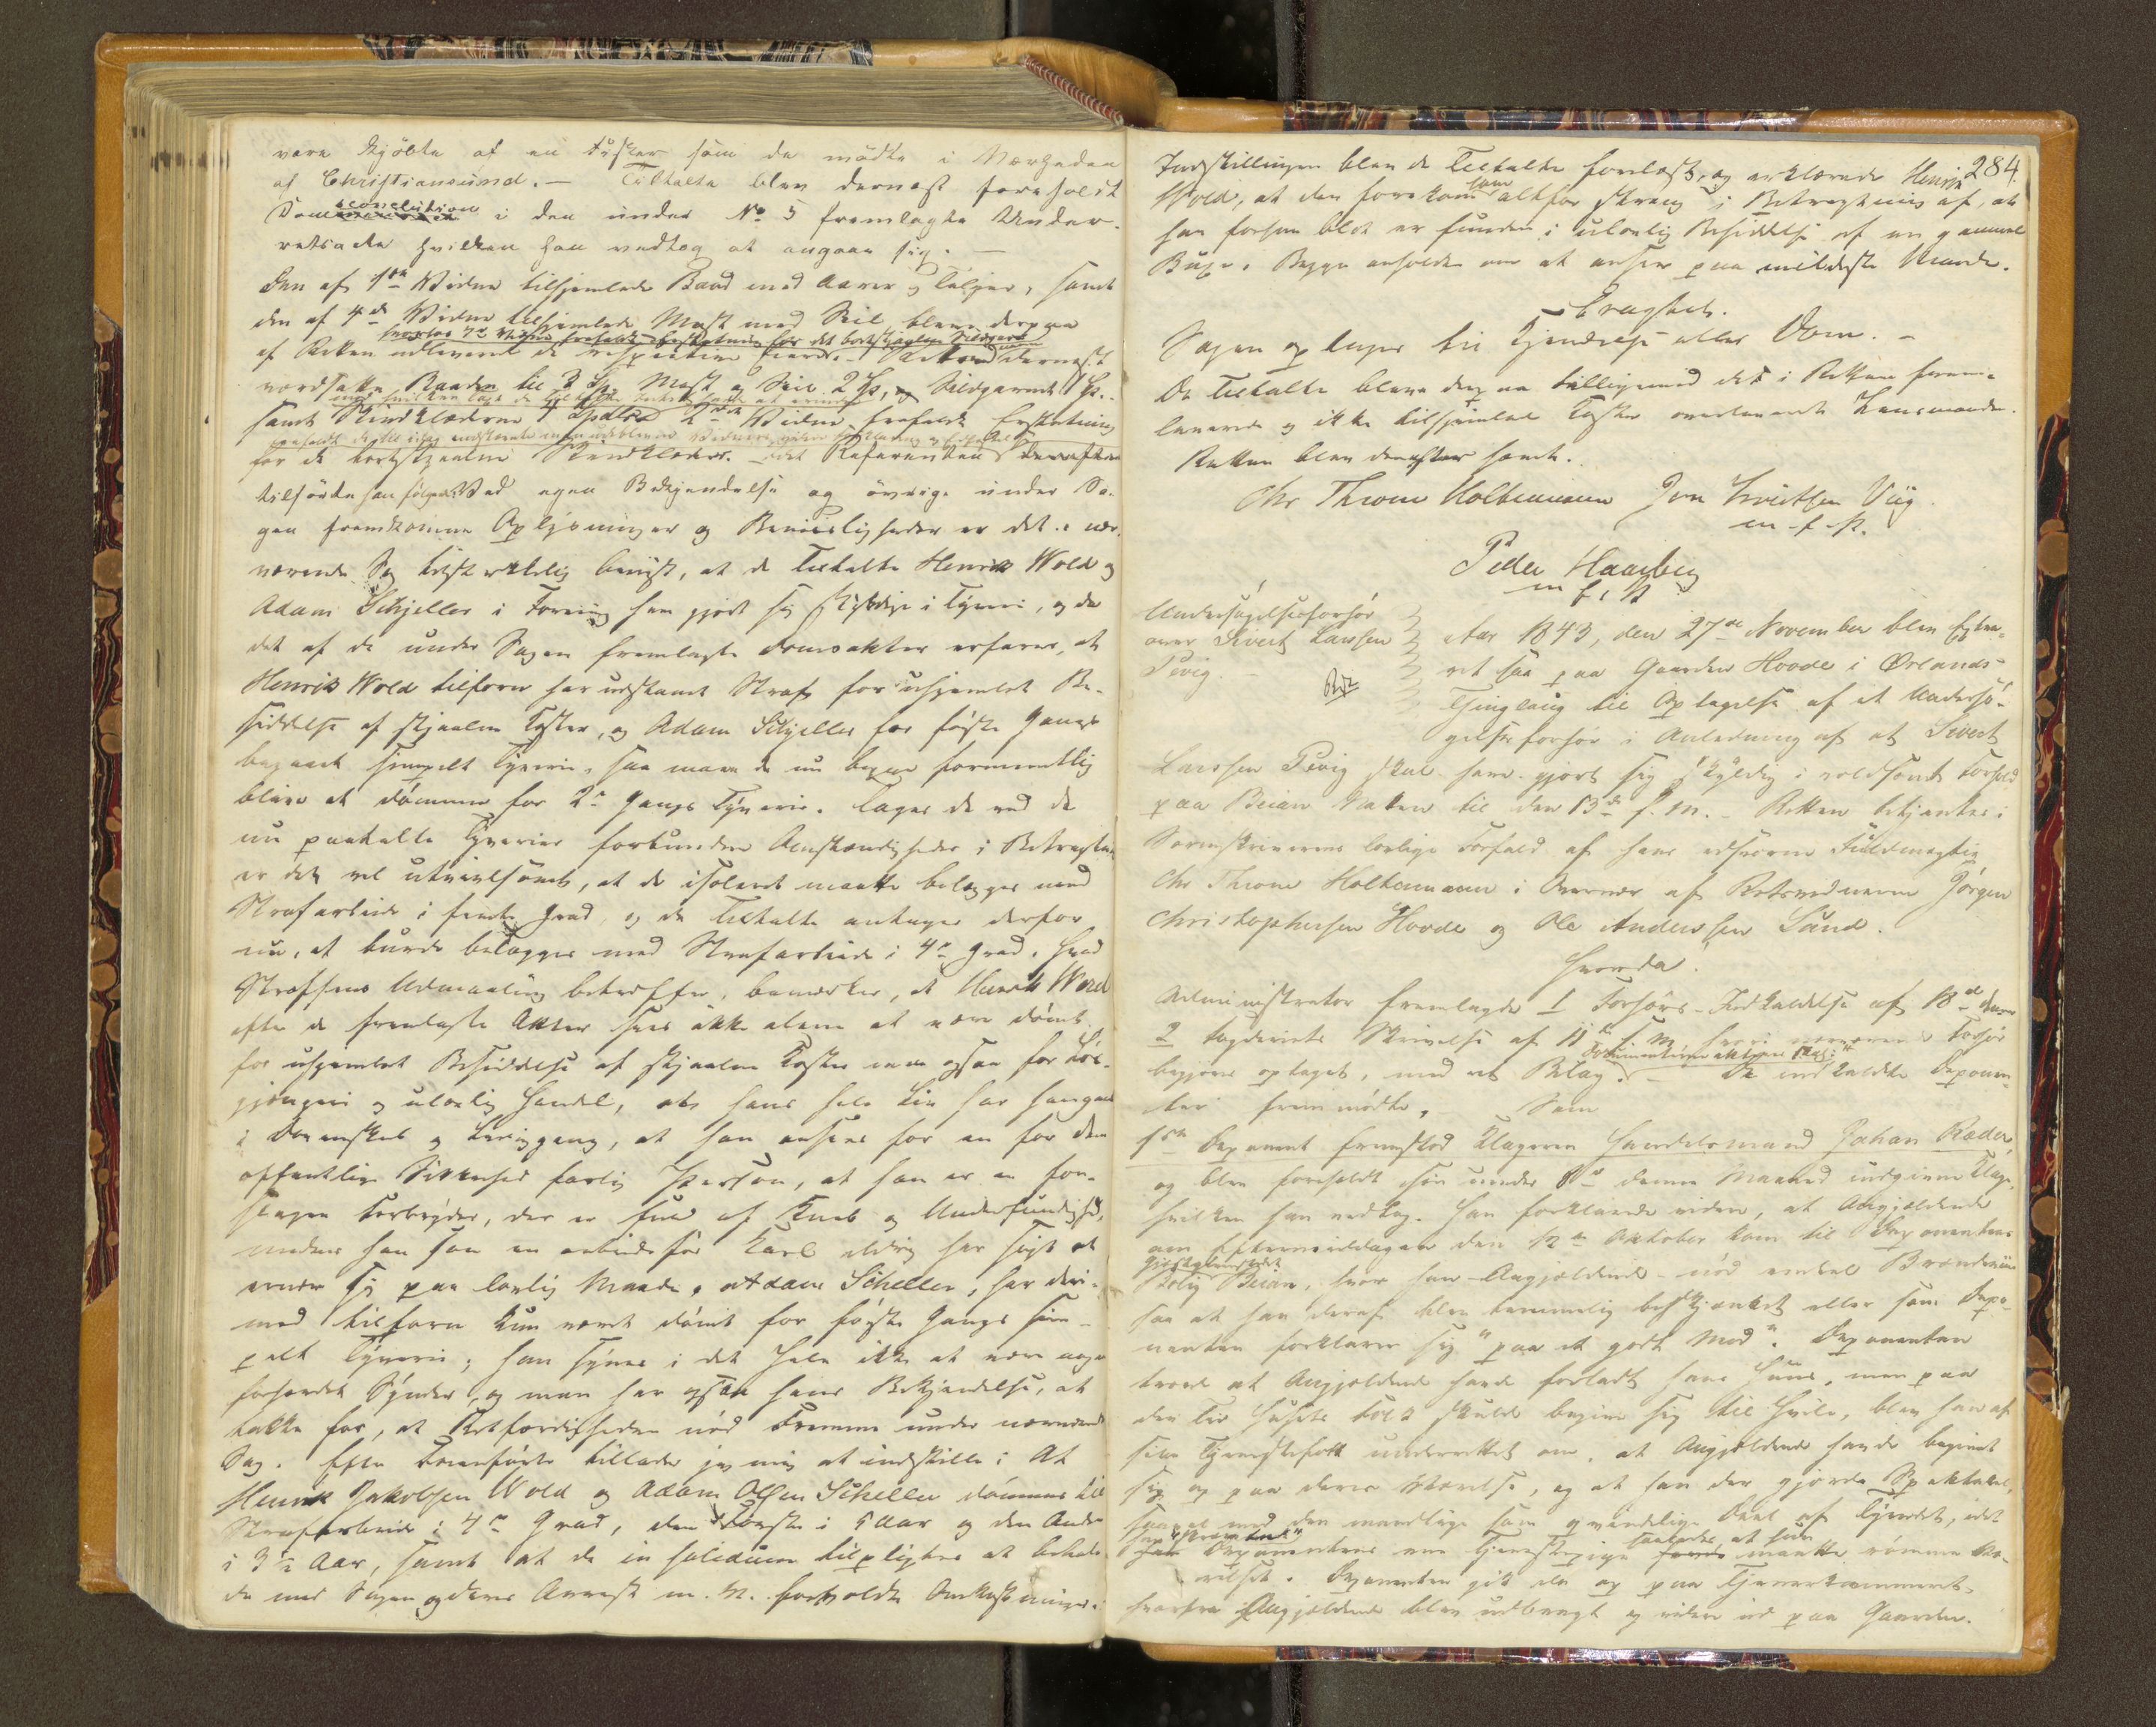 være kjøbte af en Fisker som de mødte i Nærheden
af Christiansund. — Tiltalte blev dernæst foreholdt
Domsconclusion i den under No 5 fremlagte Under-
retsacte hvilken han vedtog at angaae sig. —
Den af 1ste Vidne tilhjemlede Baad med Aarer og Tiljer, samt
den af 4de Vidne tilhjemlede Mast med Seil bleve derpaa
af Retten udleveret de respective Eiere. Retten dernæst
værdsatte Baaden til 3 Sp, Mast og Seil 2 Sp, og Sildgarnet 1 Sp.
samt Skindklæderne 2det Vidne frafaldt Erstatning
for de bortstjaalne Skindklæder. Referenten derefter
tilførte Ved egen Bekjendelse og øvrige under Sa-
gen fremkomne Oplysninger og Beviisligheder er det i nær-
værende Sag tilstrækkelig beviist, at de Tiltalte Henrik Wold og
Adam Schjeller i Forening have gjort sig skyldige i Tyveri, og da
det af de under Sagen fremlagte Domsakter erfares, at
Henrik Wold tilforn har udstaaet Straf for uhjemlet Be-
siddelse af stjaalne Koster, og Adam Schjeller for første Gang
begaaet simpelt Tyverie, saa maae de nu begge formeentlig
blive at dømme for 2den Gangs Tyverie. Tages de ved de
nu paatalte Tyverier forbundne Omstændigheder i Betragtning
er det vel utvivlsomt, at de isoleret maatte belægges med
Strafarbeide i femte Grad, og de Tiltalte antages derfor
nu, at burde belægges med Strafarbeide i 4de Grad. Hvad
Straffens Udmaaling betræffer, bemærkes, at Henrik Wold
efter de fremlagte Akter sees ikke alene at være dømt
for uhjemlet Besiddelse af stjaalne Koster men ogsaa for Løs-
gjængeri og ulovlig Handel, at hans hele Liv har hengaaet
i Dovenskab og Lediggang, at han ansees for en for den
offentlige Sikkerhed farlig Person, at han er en for-
slagen Forbryder, der er fuld af Kneb og Underfundighed,
medens han som en arbeidsfør Karl aldrig har søgt at
ernære sig paa lovlig Maade. Adam Scheller, har deri-
mod tilforn kun været dømt for første Gangs sim-
pelt Tyverie, han synes i det Hele ikke at være nogen
forhærdet Synder, og man har ogsaa hans Bekjendelse, at
takke for, at Retfærdigheden nød Fremme under nærværende
Sag. Efter Foranførte tillader jeg mig at indstille: At
Henrik Jakobsen Wold og Adam Olsen Scheller dømmes til
Strafarbeide i 4de Grad, den Første i 5 Aar og den Anden
i 3½ Aar, samt at de in solidum tilpligtes at betale
de med Sagen og deres Arrest m. M. forvoldte Omkostninger.
284.
Indstillingen blev de Tiltalte forelæst, og erklærede Henrik
Wold, at den forekom ham altfor streng i Betragtning af, at
han forhen blot er funden i ulovlig Besiddelse af en gammel
Buxe. Begge anholdte om at ansees paa mildeste Maade.
Eragtet.
Sagen optages til Kjendelse eller Dom. —
De Tiltalte bleve derpaa tilligemed det i Retten frem-
leverede og ikke tilhjemlede Koster overleveret Lensmanden.
Retten blev derefter hævet.
Chr Throne Holtermann Jon Sivertsen Viig
m. f. P.
Peder Haarberg
m f. P
Undersøgelsesforhør
over Sivert Larssen
Pevig.
Aar 1843, den 27de November blev Extra-
ret sat paa Gaarden Hovde i Ørlands-
Thinglaug til Optagelse af et Undersø-
gelsesforhør i Anledning af at Sivert
Larssen Pevig skal have gjort sig skyldig i voldsomt Forhold
paa Beian Natten til den 13de f. M. Retten betjentes i
Sorenskriverens lovlige Forfald af hans edsvorne Fuldmægtig
Chr Throne Holtermann i Overvær af Retsvidnerne Jørgen
Christophersen Hovde og Ole Andersen Sund.
Hvorda.
Administrator fremlagde 1 Forhørs-Indkaldelse af 18de dennes
2 Fogderiets Skrivelse af 11te f. M. hvori nærværende Forhør
begjæres optaget, med et Bilag. De indkaldte Deponen-
ter fremmødte. Som
1ste Deponent fremstod Klageren Handelsmand Johan Ræder
og blev foreholdt sin under 8de denne Maaned indgivne Klage,
hvilken han vedtog. Han forklarede videre, at Angjældende
om Eftermiddagen den 12te Oktober kom til Deponentens
Bolig Beian, hvor han - Angjældende - nød endeel Brændeviin
saa at han deraf blev temmelig beskjænket eller som Depo-
nenten forklarer sig "paa et godt Mod". Deponenten
troede at Angjældende havde forladt hans Huus, men paa
den Tid Husets Folk skulde begive sig til Hvile, blev han af
sine Tjenestefolk underrettet om, at Angjældende havde begivet
sig op paa deres Værelse, og at han der gjorde Spektakel,
saavel med den mandlige som qvindelige Deel af Tyendet, idet
Deponentens ene Tjenestepige saaledes, at hun maatte rømme Væ-
relset. Deponenten gik da op paa Tjenerkammeret,
hvorfra Angjældende blev udbragt og videre ud paa Gaarden.